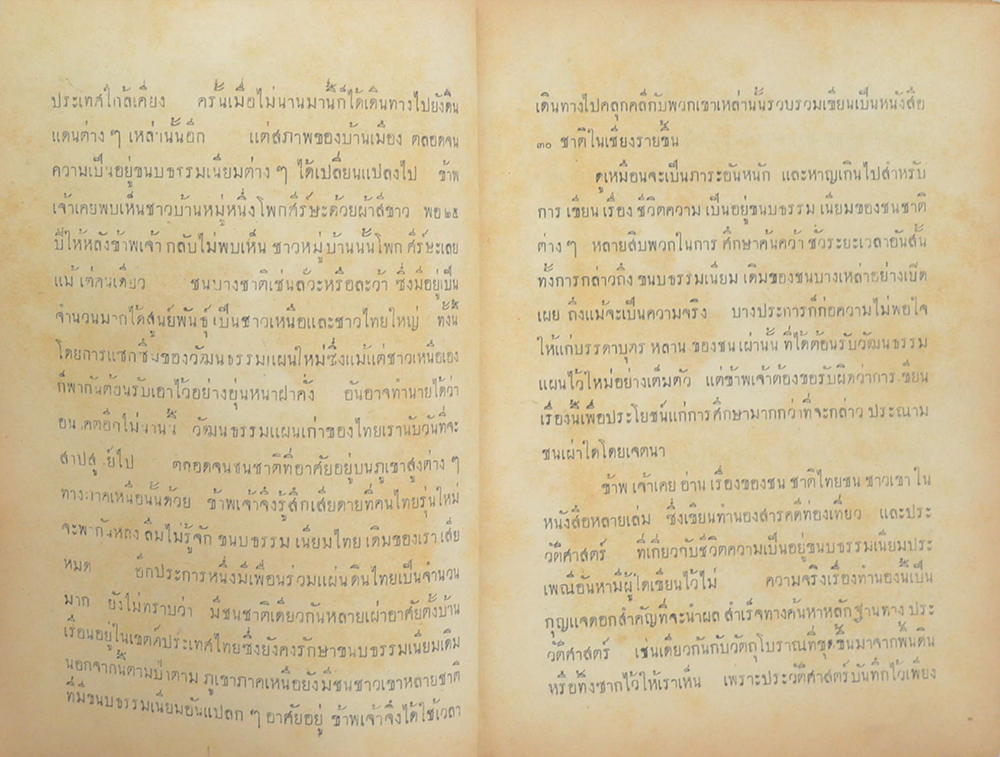 ประเทศใกล้เคียง ครั้นเมื่อไม่นานมานี้ก็ได้เดินทางไปยังดิน
แดนต่าง ๆ เหล่านั้นอีก แต่สภาพของบ้านเมือง ตลอดจน
ความเป็นอยู่ขนบธรรมเนียมต่าง ๆ ได้เปลี่ยนแปลงไป ข้าพ
เจ้าเคยพบเห็นชาวบ้านหมู่หนึ่งโพกศีรษะด้วยผ้าสีขาว พอ ๒๕
ปีให้หลังข้าพเจ้า กลับไม่พบเห็น ชาวหมู่บ้านนั้นโพก ศีรษะเลย
แม้ แต่คนเดียว ชนบางชาติเช่นลัวะหรือละว้า ซึ่งมีอยู่เป็น
จำนวนมากได้สูญพันธุ์ เป็นชาวเหนือและชาวไทยใหญ่ ทั้งนี้
โดยการแซกซึมของวัฒนธรรมแผนใหม่ซึ่งแม้แต่ชาวเหนือเอง
ก็พากันต้อนรับเอาไว้อย่างอุ่นหนาฝาคั่ง อันอาจทำนายได้ว่า
อนาคตอีกไม่นานนี้ วัฒนธรรมแผนเก่าของไทยเรานับวันที่จะ
สาปสูญไป ตลอดจนชนชาติที่อาศัยอยู่บนภูเขาสูงต่าง ๆ
ทางภาคเหนือนั้นด้วย ข้าพเจ้าจึงรู้สึกเสียดายที่คนไทยรุ่นใหม่
จะพากันหลงลืมไม่รู้จัก ขนบธรรม เนียมไทย เดิมของเรา เสีย
หมด อีกประการหนึ่งมีเพื่อนร่วมแผ่นดินไทยเป็นจำนวน
มาก ยังไม่ทราบว่า มีชนชาติเดียวกันหลายเผ่าอาศัยตั้งบ้าน
เรือนอยู่ในเขตต์ประเทศไทยซึ่งยังคงรักษาขนบธรรมเนียมเดิม
นอกจากนี้ตามป่าตาม ภูเขาภาคเหนือยังมีชนชาวเขาหลายชาติ
ที่มีขนบธรรมเนียมอันแปลก ๆ อาศัยอยู่ ข้าพเจ้าจึงได้ใช้เวลา
เดินทางไปคลุกคลีกับพวกเขาเหล่านั้นรวบรวมเขียนเป็นหนังสือ
๓๐ ชาติในเชียงรายขึ้น
ดูเหมือนจะเป็นภาระอันหนัก และหาญเกินไปสำหรับ
การ เขียน เรื่อง ชีวิตความ เป็นอยู่ขนบธรรม เนียมของชนชาติ
ต่าง ๆ หลายสิบพวกในการ ศึกษาค้นคว้า ชั่วระยะเวลาอันสั้น
ทั้งการกล่าวถึง ขนบธรรมเนียม เดิมของชนบางเหล่าอย่างเปิด
เผย ถึงแม้จะเป็นความจริง บางประการก็ก่อความไม่พอใจ
ให้แก่บรรดาบุตร หลาน ของชน เผ่านั้น ที่ได้ต้อนรับวัฒนธรรม
แผนไว้ใหม่อย่างเต็มตัว แต่ข้าพเจ้าต้องขอรับผิดว่าการเขียน
เรื่องนี้เพื่อประโยชน์แก่การศึกษามากกว่าที่จะกล่าว ประณาม
ชนเผ่าใดโดยเจตนา
ข้าพ เจ้าเคย อ่าน เรื่องของชน ชาติไทยชน ชาวเขา ใน
หนังสือหลายเล่ม ซึ่งเขียนทำนองสารคดีท่องเที่ยว และประ
วัติศาสตร์ ที่เกี่ยวกับชีวิตความเป็นอยู่ขนบธรรมเนียมประ
เพณีอันหามีผู้ใดเขียนไว้ไม่ ความจริงเรื่องทำนองนี้เป็น
กุญแจดอกสำคัญที่จะนำผล สำเร็จทางค้นหาหลักฐานทาง ประ
วัติศาสตร์ เช่นเดียวกันกับวัตถุโบราณที่ขุดขึ้นมาจากพื้นดิน
หรือทิ้งซากไว้ให้เราเห็น เพราะประวัติศาสตร์บันทึกไว้เพียง